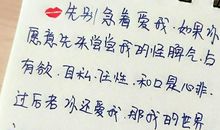 先别急着爱我.如果你
愿意先来尝尝我的怪脾气.占
有欲.自私.任性.和口是心非.
过后若你还爱我.那我的世界